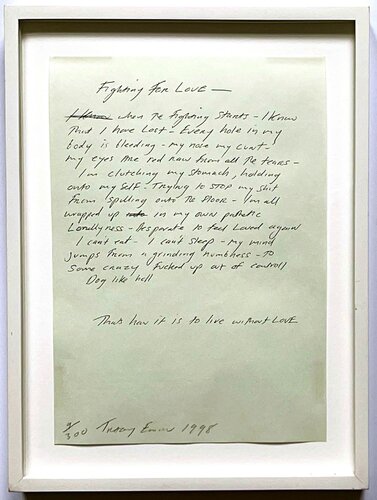 Fighting For Love —
I know when The Fighting Starts - I know
That I have Lost - Every hole in my
body is bleeding - my nose my cunt -
my eyes are red raw from all The tears -
I'm clutching my stomach, holding
onto my self - Trying to stop my shit
From spilling onto The Floor - I'm all
wrapped up in my own pathetic
Lonellyness - Desperate to feel Loved again
I can't eat - I can't sleep - my mind
jumps From a grinding numbness - To
Some crazy Fucked up out of controll
Dog like hell
Thats how it is to live without LovE
/300 Tracey Emin 1998